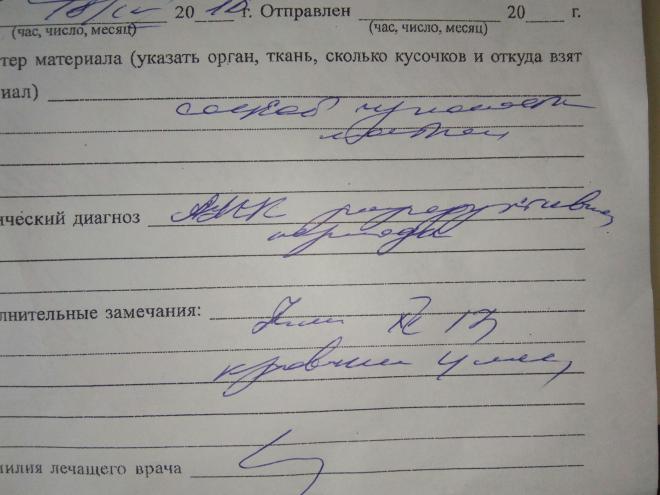 18/IV 2012 г. Отправлен 20 г.
(час, число, месяц) (час, число, месяц)
тер материала (указать орган, ткань, сколько кусочков и откуда взят
иал)
соскоб полости
матки
ический диагноз АМК репродуктивного
периода
лнительные замечания:
XII 13
милия лечащего врача